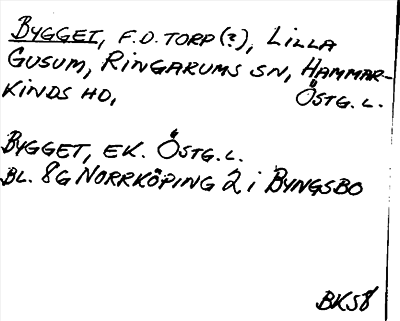 BYGGET, F.D. TORP (?), LILLA
GUSUM, RINGARUMS SN, HAMMAR-
KINDS HD, ÖSTG. L.
BYGGET, EK. ÖSTG. L.
BL. 8G NORRKÖPING 2 i BYNGSBO
BK58